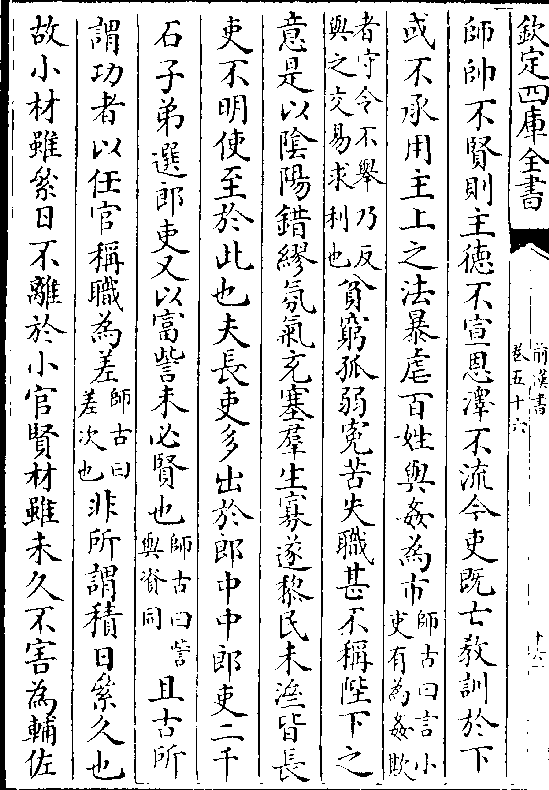 欽定四庫全書
前漢書
卷五十六
師帥不賢則主德不宣恩澤不流今吏既亡教訓於下
或不承用主上之法暴虐百姓與姦為市師古曰言小吏有為姦欺
者守令不舉乃反與之交易求利也貧窮孤弱寃苦失職甚不稱陛下之
意是以陰陽錯繆氛氣充塞羣生寡遂黎民未濟皆長
吏不明使至於此也夫長吏多出於郎中中郎吏二千
石子弟選郎吏又以富訾未必賢也師古曰訾與資同且古所
謂功者以任官稱職為差師古曰差次也非所謂積日絫久也
故小材雖絫日不離於小官賢材雖未久不害為輔佐